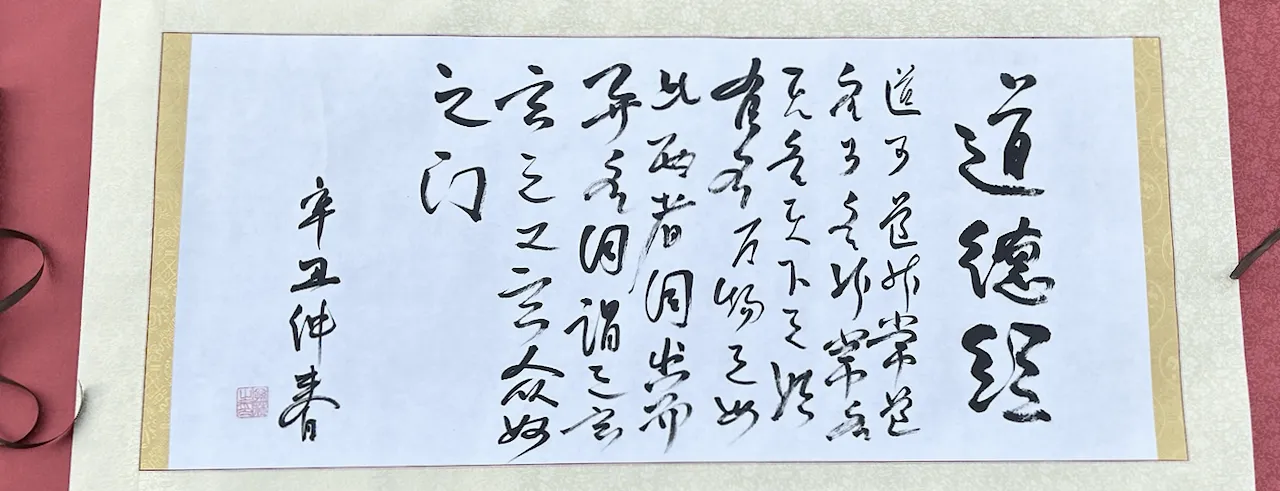 道德经
道可道非常道
名可名非常名
无名天下之始
有名万物之母
此两者同出而
异名同谓之玄
玄之又玄众妙
之门
辛丑仲春